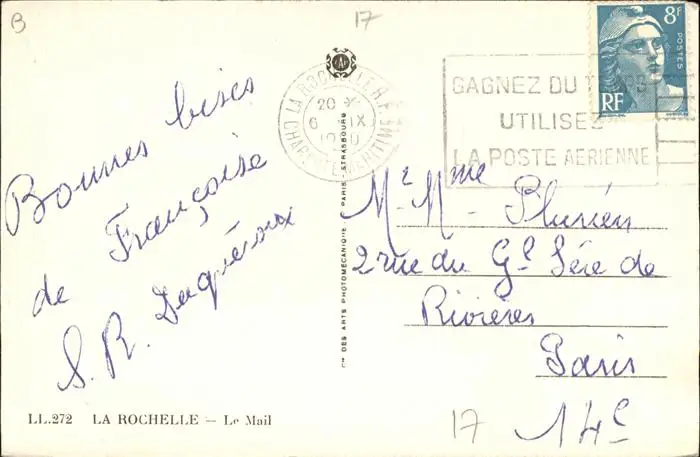 B
17
Bonnes bises
de Françoise
S. R. Duquéroux
LL.272 LA ROCHELLE — Le Mail
Cie DES ARTS PHOTOMECANIQUES - PARIS - STRASBOURG
LA ROCHELLE R.P.
20
6 IX
CHARENTE MARITIME
GAGNEZ DU TEMPS
UTILISEZ
LA POSTE AERIENNE
8F
POSTES
RF
Mr Mme Plurien
2 rue du Gl Séré de
Rivières
Paris
14e
17